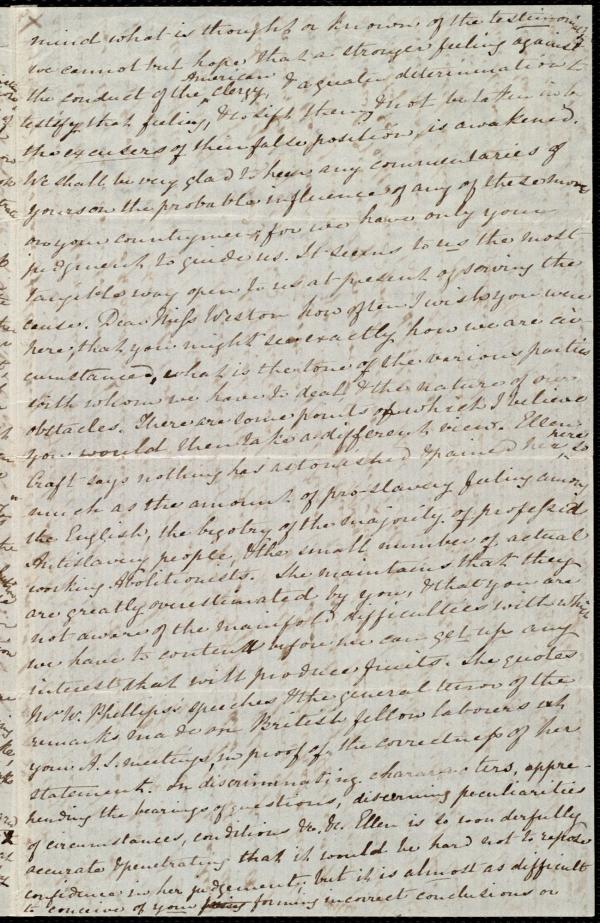 mind what is thought or known of the testimonies
we cannot but hope that a stronger feeling against
the conduct of the American Clergy, & a greater determination to
testify that feeling, & to sift them, & not be taken in by
the excusers of their false position, is awakened.
We shall be very glad to hear any commentaries of
yours on the probable influence of any of these move
on your countrymen, for we have only your
judgment to guide us. It seems to us the most
tangible way open to us at present of serving the
cause. Dear Miss Weston how often I wish you were
here, that you might see exactly how we are cir
cumstanced, what is the tone of the various parties
with whom we have to deal, & the nature of our
obstacles. There are some points of which I believe
you would then take a different view. Ellen
Craft says nothing has astonished & pained her, here so
much as the amount of pro-slavery feeling among
the English, the bigotry of the majority of professed
Antislavery people, & the small number of actual
working Abolitionists. She maintains that they
are greatly overestimated by you, & that you are
not aware of the manifold difficulties with which
we have to contend before we can get up any
interest that will produce fruits. She quotes
Mr. W. Phillips's speeches & the general tenor of the
remarks made on British fellow labourers at
your A. S. meetings in proof of the correctness of her
statement. On discriminating characters, appre-
hending the bearings of questions, discerning peculiarities
of circumstances, conditions &c. &c. Ellen is so wonderfully
accurate & penetrating that it would be hard not to repose
confidence in her judgement, but it is almost as difficult
to conceive of your forming incorrect conclusions or